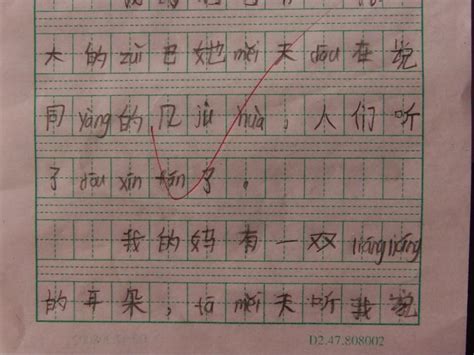 大的zuǐ巴她měi天dōu在说
同yàng的几jù huà，人们听
了dōu xīn fán了。
我的妈有一双liàng liàng
的耳朵，tā měi天听我说
D2.47.808002